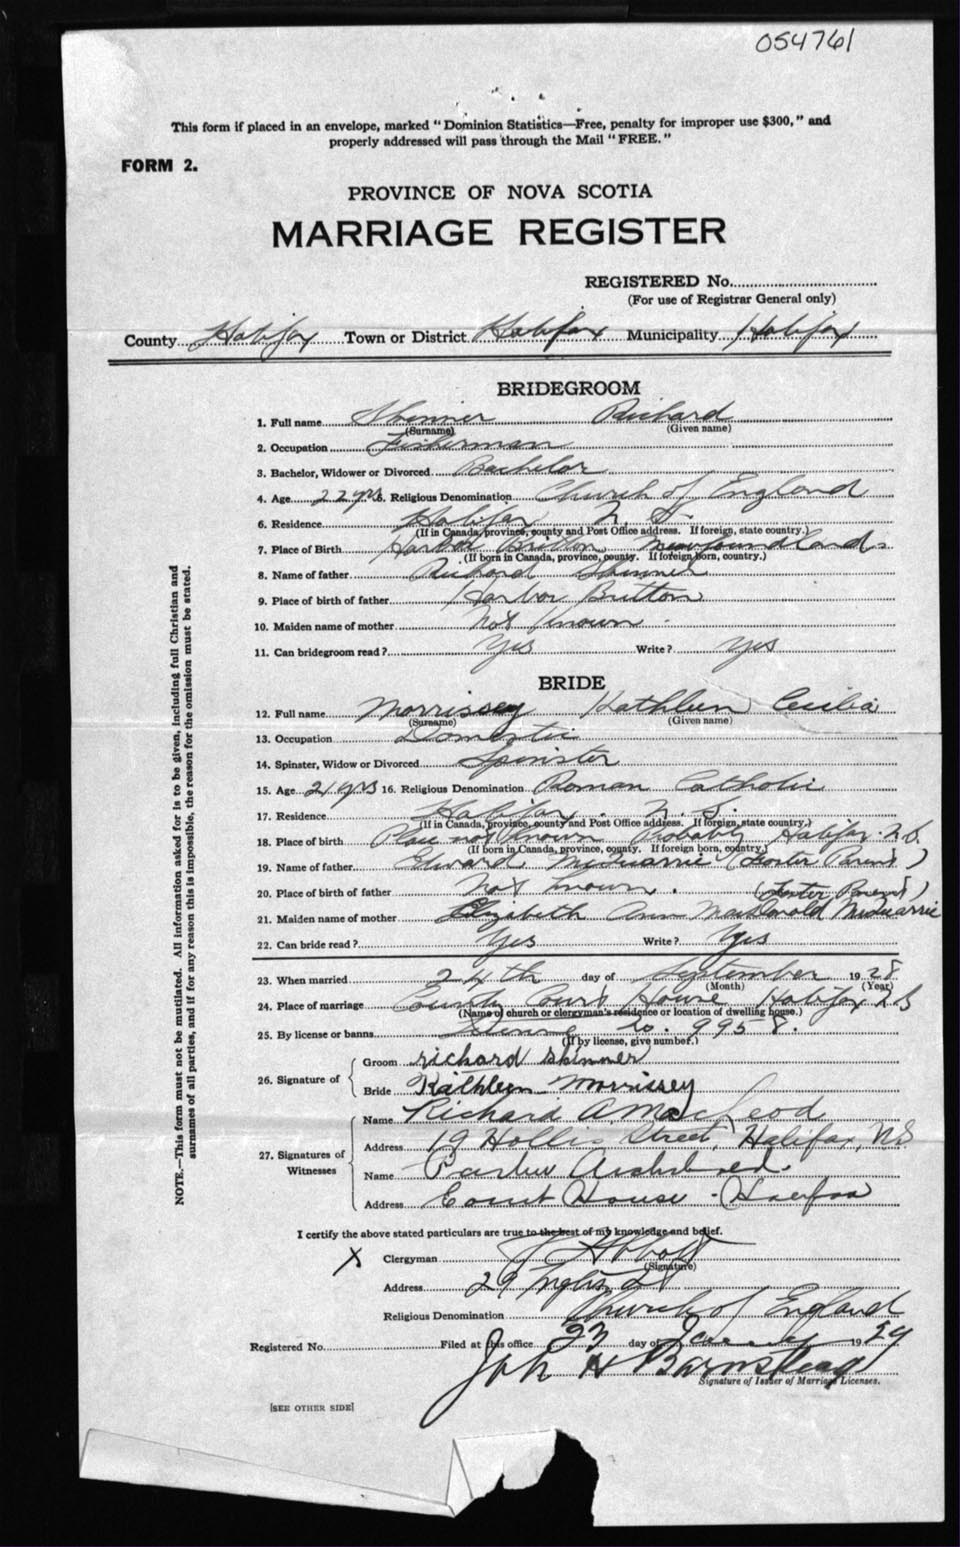 054761
This form if placed in an envelope, marked "Dominion Statistics—Free, penalty for improper use $300," and
properly addressed will pass through the Mail "FREE."
FORM 2.
PROVINCE OF NOVA SCOTIA
MARRIAGE REGISTER
REGISTERED No.
(For use of Registrar General only)
County Halifax Town or District Halifax Municipality Halifax
BRIDEGROOM
1. Full name Skinner Richard
(Surname) (Given name)
2. Occupation Fisherman
3. Bachelor, Widower or Divorced Bachelor
4. Age 22 yrs 5. Religious Denomination Church of England
6. Residence Halifax N. S.
(If in Canada, province, county and Post Office address. If foreign, state country.)
7. Place of Birth Harbor Britton Newfoundland
(If born in Canada, province, county. If foreign born, country.)
8. Name of father Richard Skinner
9. Place of birth of father Harbor Britton
10. Maiden name of mother Not Known
11. Can bridegroom read? Yes Write? Yes
BRIDE
12. Full name Morrissey Kathleen Cecilia
(Surname) (Given name)
13. Occupation Domestic
14. Spinster, Widow or Divorced Spinster
15. Age 21 yrs 16. Religious Denomination Roman Catholic
17. Residence Halifax N. S.
(If in Canada, province, county and Post Office address. If foreign, state country.)
18. Place of birth Place not Known Probably Halifax N.S.
(If born in Canada, province, county. If foreign born, country.)
19. Name of father Edward McQuarrie (Foster Parent)
20. Place of birth of father Not Known. (Foster Parent)
21. Maiden name of mother Elizabeth Ann MacDonald McQuarrie
22. Can bride read? Yes Write? Yes
23. When married 24th day of September 1928
(Month) (Year)
24. Place of marriage County Court House Halifax N.S
(Name of church or clergyman's residence or location of dwelling house.)
25. By license or banns License No. 9958.
(If by license, give number.)
26. Signature of
Groom richard skinner
Bride Kathleen Morrissey
27. Signatures of Witnesses
Name Richard A. MacLeod
Address 19 Hollis Street, Halifax, NS
Name Archibald
Address Court House - Halifax
I certify the above stated particulars are true to the best of my knowledge and belief.
X Clergyman Abbott
(Signature)
Address 29 Inglis St
Religious Denomination Church of England
Registered No. Filed at this office 23 day of 1929
John H Barnstead
Signature of Issuer of Marriage Licenses.
[SEE OTHER SIDE]
NOTE.—This form must not be mutilated. All information asked for is to be given, including full Christian and
surnames of all parties, and if for any reason this is impossible, the reason for the omission must be stated.